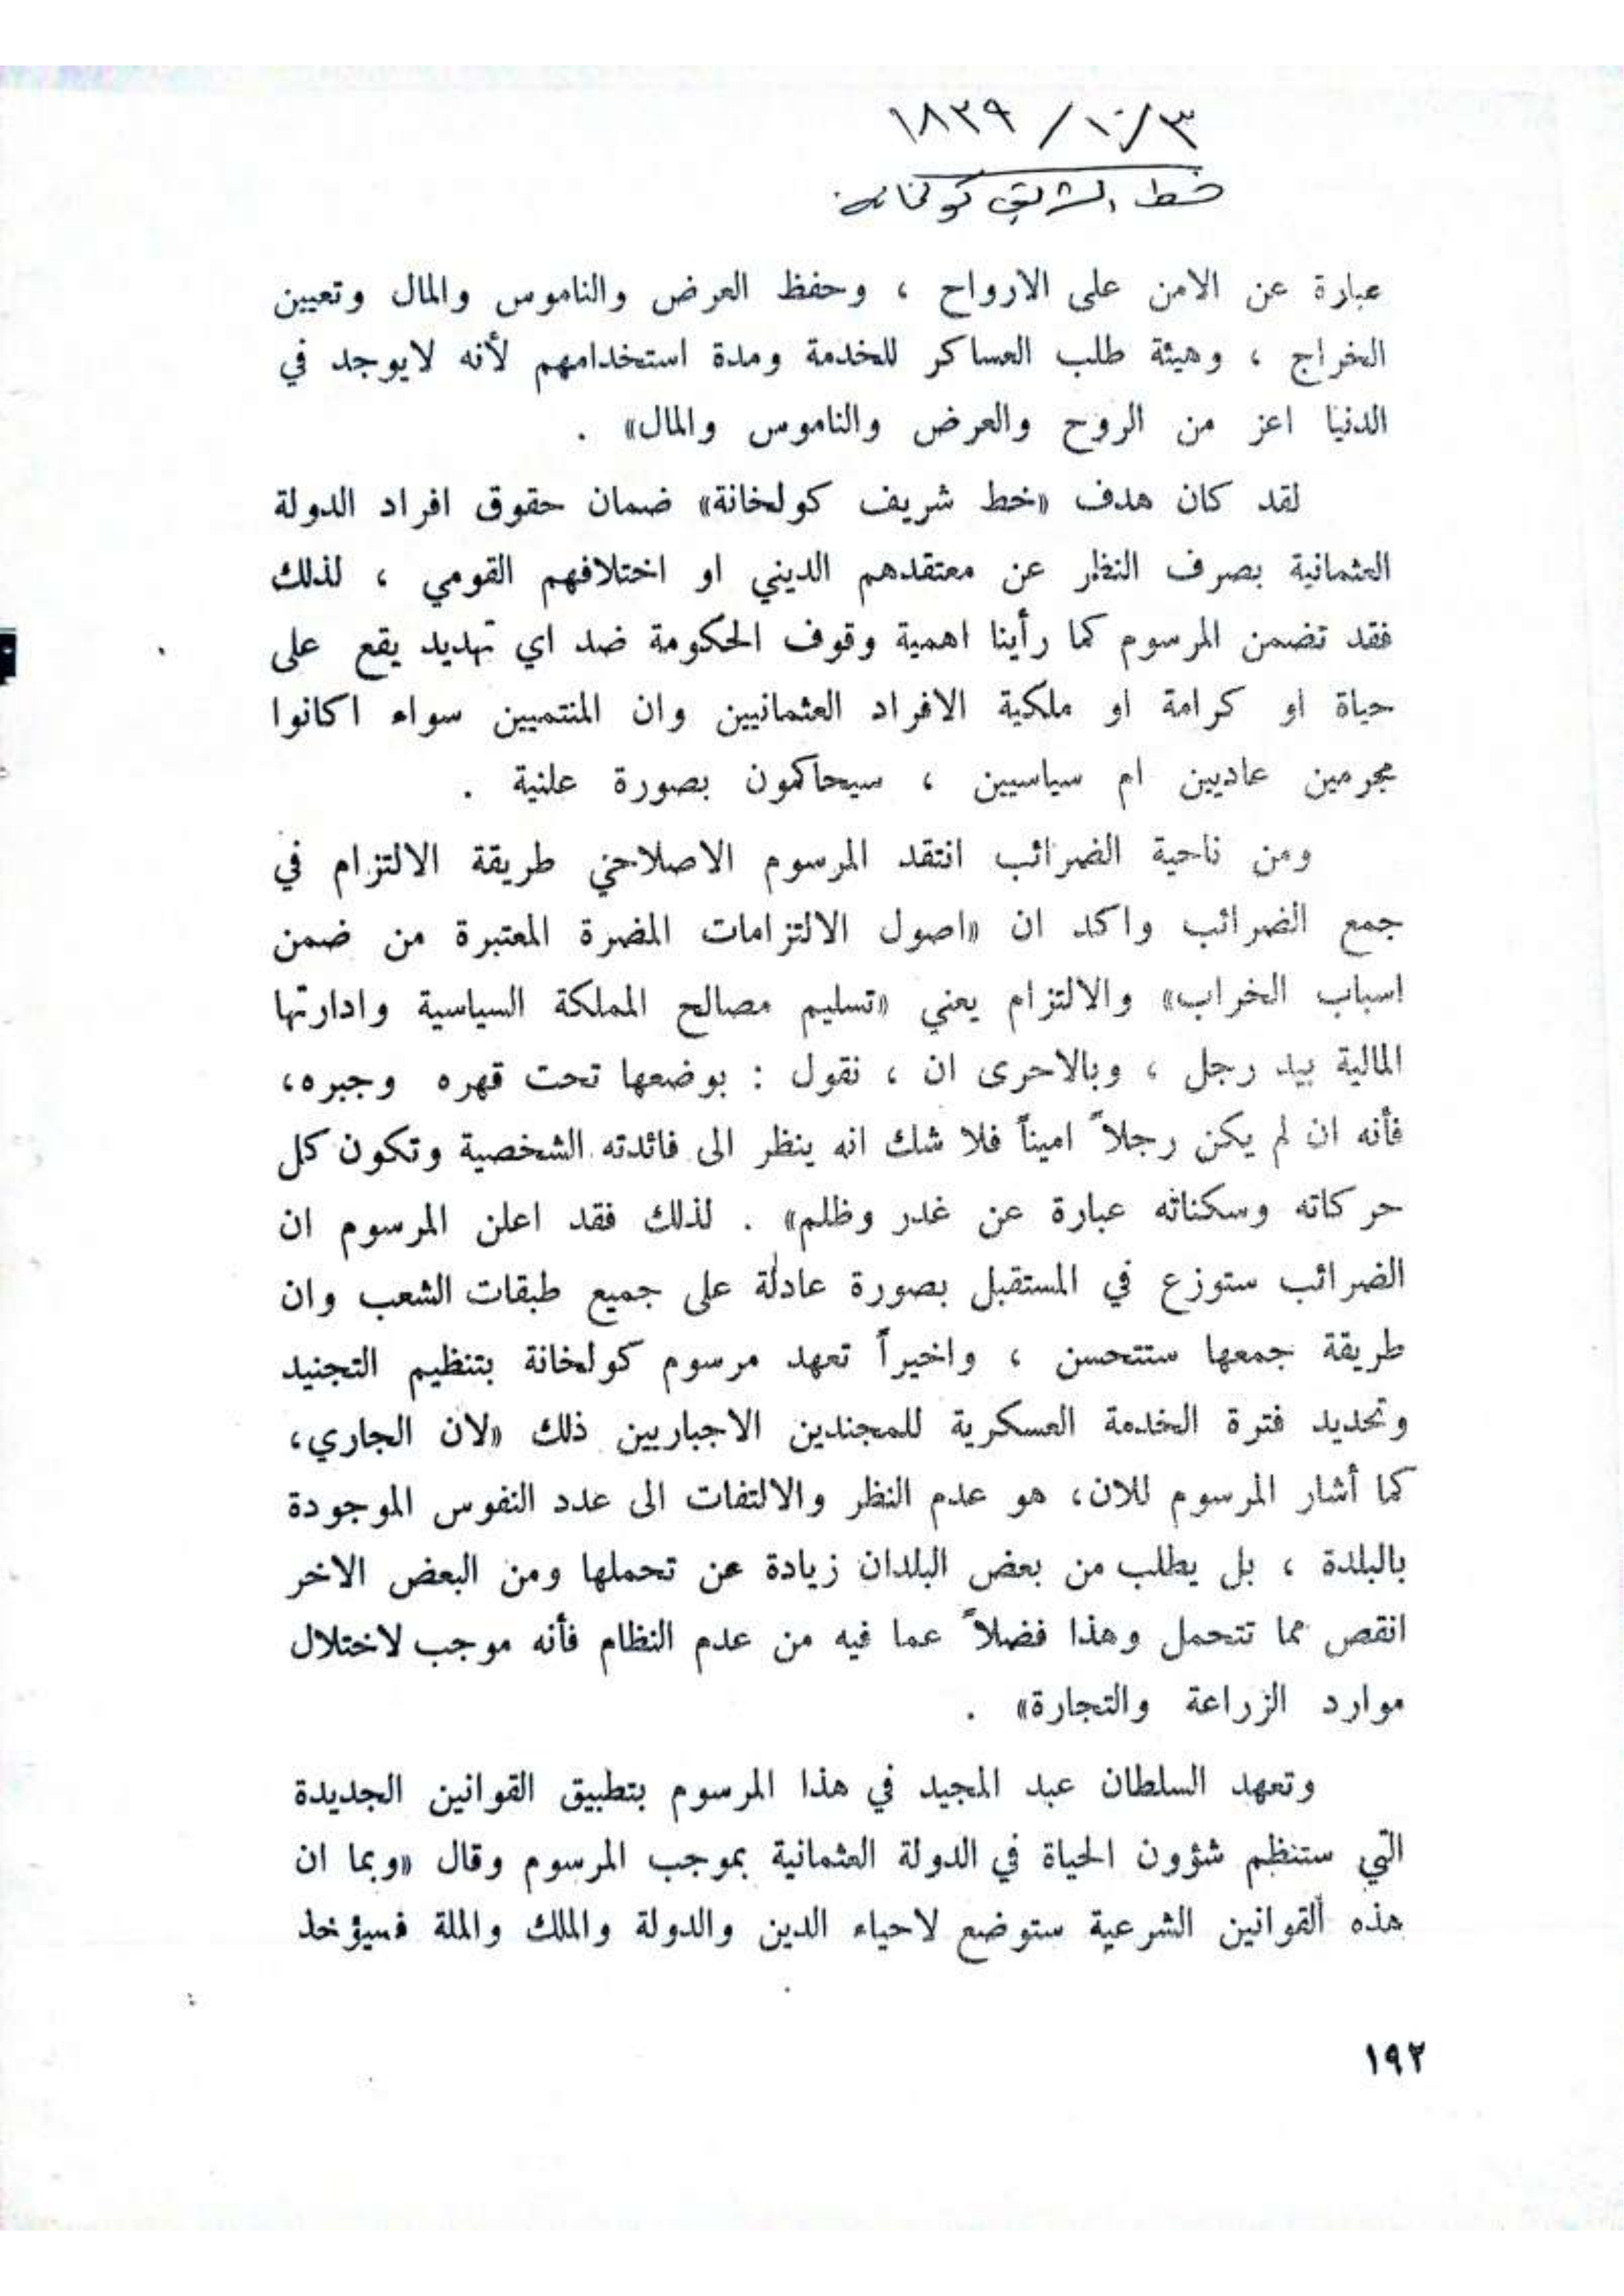 ١٨٣٩ / ١٠/ ٣
خط الشريف كولخانه
عبارة عن الامن على الارواح ، وحفظ العرض والناموس والمال وتعيين
الخراج ، وهيئة طلب العساكر للخدمة ومدة استخدامهم لأنه لايوجد في
الدنيا اعز من الروح والعرض والناموس والمال» .
لقد كان هدف «خط شريف كولخانة» ضمان حقوق افراد الدولة
العثمانية بصرف النظر عن معتقدهم الديني او اختلافهم القومي ، لذلك
فقد تضمن المرسوم كما رأينا اهمية وقوف الحكومة ضد اي تهديد يقع على
حياة او كرامة او ملكية الافراد العثمانيين وان المنتميين سواء اكانوا
مجرمين عاديين ام سياسيين ، سيحاكمون بصورة علنية .
ومن ناحية الضرائب انتقد المرسوم الاصلاحي طريقة الالتزام في
جمع الضرائب واكد ان «اصول الالتزامات المضرة المعتبرة من ضمن
اسباب الخراب» والالتزام يعني «تسليم مصالح المملكة السياسية وادارتها
المالية بيد رجل ، وبالاحرى ان ، نقول : بوضعها تحت قهره وجبره،
فأنه ان لم يكن رجلاً اميناً فلا شك انه ينظر الى فائدته الشخصية وتكون كل
حركاته وسكناته عبارة عن غدر وظلم» . لذلك فقد اعلن المرسوم ان
الضرائب ستوزع في المستقبل بصورة عادلة على جميع طبقات الشعب وان
طريقة جمعها ستتحسن ، واخيراً تعهد مرسوم كولخانة بتنظيم التجنيد
وتحديد فترة الخدمة العسكرية للمجندين الاجباريين ذلك «لان الجاري،
كما أشار المرسوم للان، هو عدم النظر والالتفات الى عدد النفوس الموجودة
بالبلدة ، بل يطلب من بعض البلدان زيادة عن تحملها ومن البعض الاخر
انقص مما تتحمل وهذا فضلاً عما فيه من عدم النظام فأنه موجب لاختلال
موارد الزراعة والتجارة» .
وتعهد السلطان عبد المجيد في هذا المرسوم بتطبيق القوانين الجديدة
التي ستنظم شؤون الحياة في الدولة العثمانية بموجب المرسوم وقال «وبما ان
هذه القوانين الشرعية ستوضع لاحياء الدين والدولة والملك والملة فسيؤخذ
١٩٢